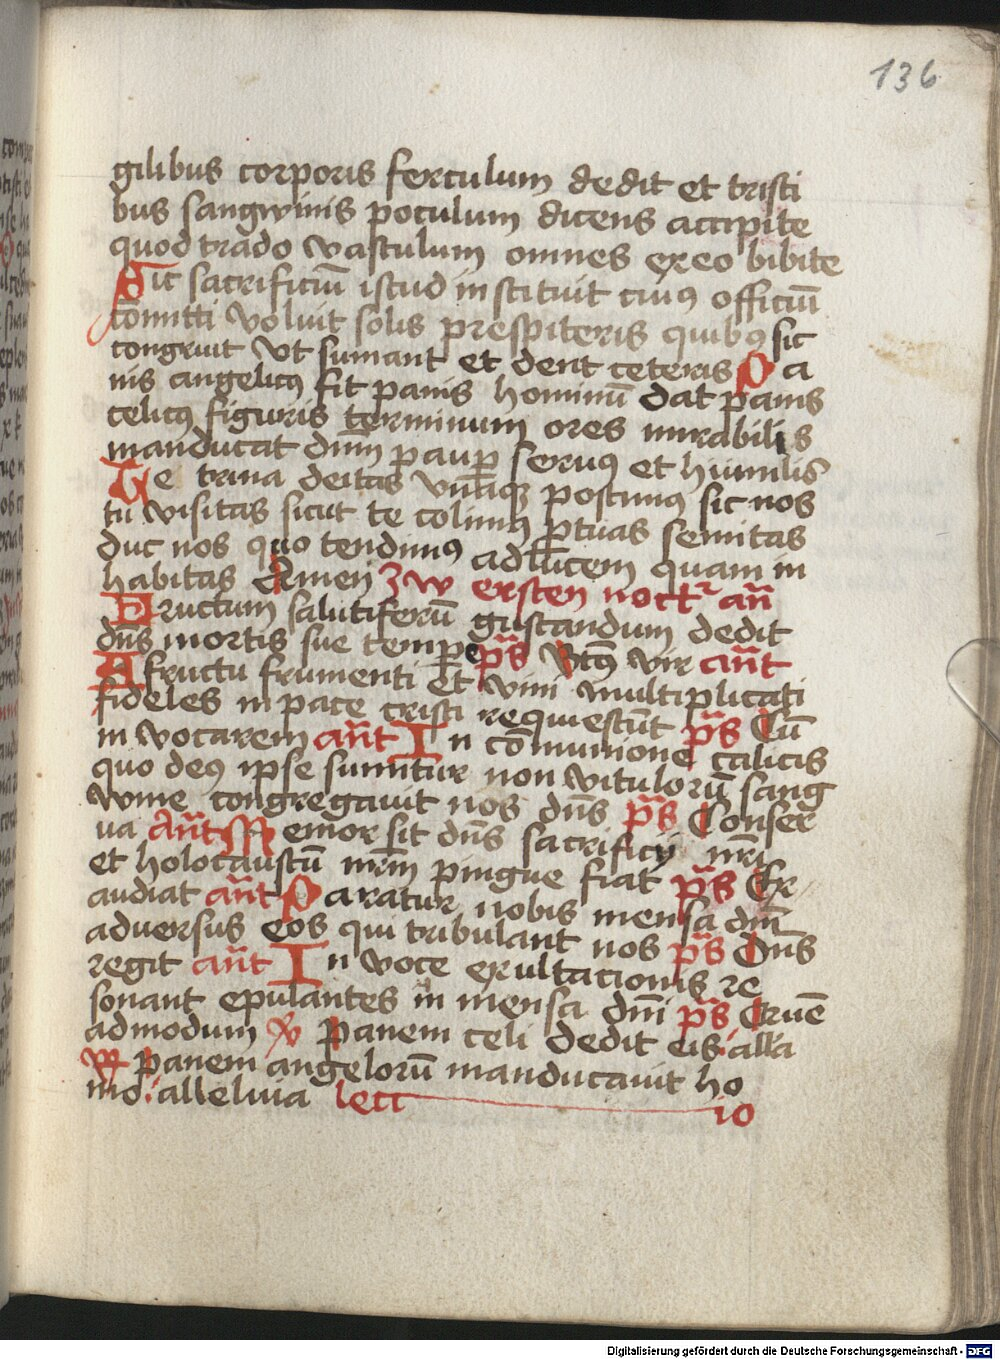 136
gilibus corporis ferculum dedit et tristi
bus sangwinis poculum dicens accipite
quod trado vasculum omnes ex eo bibite
Sic sacrificiū istud instituit cuiꝰ officiū
cōmitti voluit solis prespiteris quibꝰ sic
congruit vt sumant et dent ceteris Pa
nis angelicꝰ fit panis hominū dat panis
celicꝰ figuris terminum ores mirabilis
manducat dnm̄ paup̲ seruꝰ et humilis
Te trina deitas vnaq̄ꝫ poscimꝰ sic nos
tu visitas sicut te colimꝰ p̲ tuas semitas
duc nos quo tendimꝰ ad lucem quam in
habitas Amen Zw ersten noctꝛ̄ an̄
Fructum salutiferū gustandum dedit
dn̄s mortis sue tempore p̄s Btꝰ vir an̄t
A fructu frumenti et vini multiplicati
fideles in pace cristi requiescūt p̄s Cū
in vocarem an̄t In cōmunione calicis
quo deꝰ ipse sumitur non vitulorū sang
wine congregauit nos dn̄s p̄s Conser
ua An̄t Memor sit dn̄s sacrificij nr̄i
et holocaustū nrm̄ pingue fiat p̄s Ex
audiat an̄t Paratur nobis mensa dn̄i
aduersus eos qui tribulant nos p̄s Dn̄s
regit an̄t In voce exultacionis re
sonant epulantes in mensa dn̄i p̄s Quē
admodum V Panem celi dedit eis alla
R Panem angelorū manducauit ho
mo alleluia lecc io
Digitalisierung gefördert durch die Deutsche Forschungsgemeinschaft - DFG